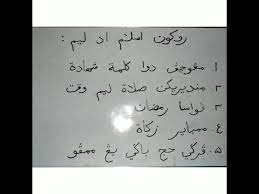 روكون اسلام اد ليم :
١. مڠوچڤ دوا كلمة شهادة
٢. منديريكن صلاة ليم وقت
٣. ڤواسا رمضان
٤. ممباير زكاة
٥. ڤرݢي حج باݢي يڠ ممڤو